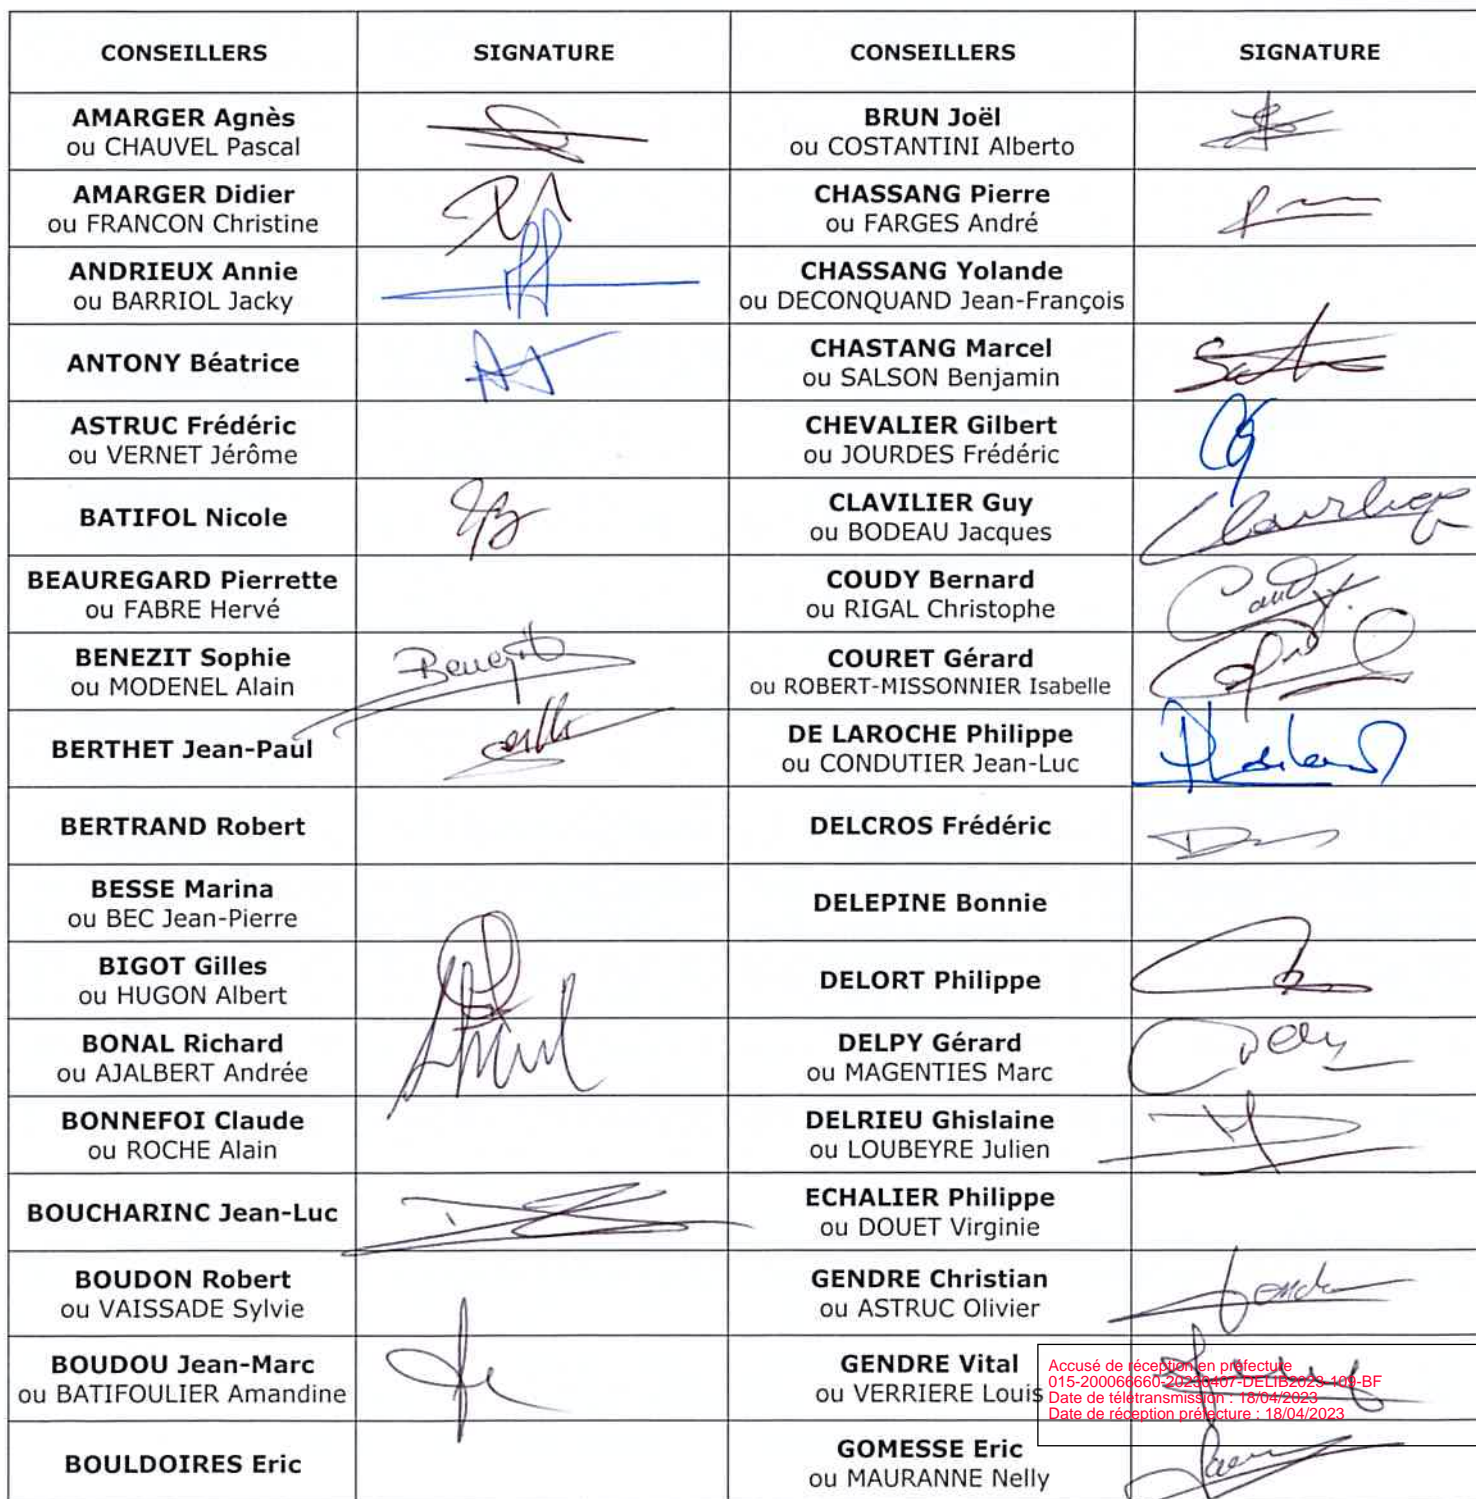 CONSEILLERS SIGNATURE CONSEILLERS SIGNATURE
AMARGER Agnès
ou CHAUVEL Pascal
BRUN Joël
ou COSTANTINI Alberto
AMARGER Didier
ou FRANCON Christine
CHASSANG Pierre
ou FARGES André
ANDRIEUX Annie
ou BARRIOL Jacky
CHASSANG Yolande
ou DECONQUAND Jean-François
ANTONY Béatrice
CHASTANG Marcel
ou SALSON Benjamin
ASTRUC Frédéric
ou VERNET Jérôme
CHEVALIER Gilbert
ou JOURDES Frédéric
BATIFOL Nicole
CLAVILIER Guy
ou BODEAU Jacques
BEAUREGARD Pierrette
ou FABRE Hervé
COUDY Bernard
ou RIGAL Christophe
BENEZIT Sophie
ou MODENEL Alain
Benezit
COURET Gérard
ou ROBERT-MISSONNIER Isabelle
BERTHET Jean-Paul
DE LAROCHE Philippe
ou CONDUTIER Jean-Luc
BERTRAND Robert
DELCROS Frédéric
BESSE Marina
ou BEC Jean-Pierre
DELEPINE Bonnie
BIGOT Gilles
ou HUGON Albert
DELORT Philippe
BONAL Richard
ou AJALBERT Andrée
DELPY Gérard
ou MAGENTIES Marc
BONNEFOI Claude
ou ROCHE Alain
DELRIEU Ghislaine
ou LOUBEYRE Julien
BOUCHARINC Jean-Luc
ECHALIER Philippe
ou DOUET Virginie
BOUDON Robert
ou VAISSADE Sylvie
GENDRE Christian
ou ASTRUC Olivier
BOUDOU Jean-Marc
ou BATIFOULIER Amandine
GENDRE Vital
ou VERRIERE Louis
Accusé de réception en préfecture
015-200066660-20230407-DELIB2023-109-BF
Date de télétransmission : 18/04/2023
Date de réception préfecture : 18/04/2023
BOULDOIRES Eric
GOMESSE Eric
ou MAURANNE Nelly